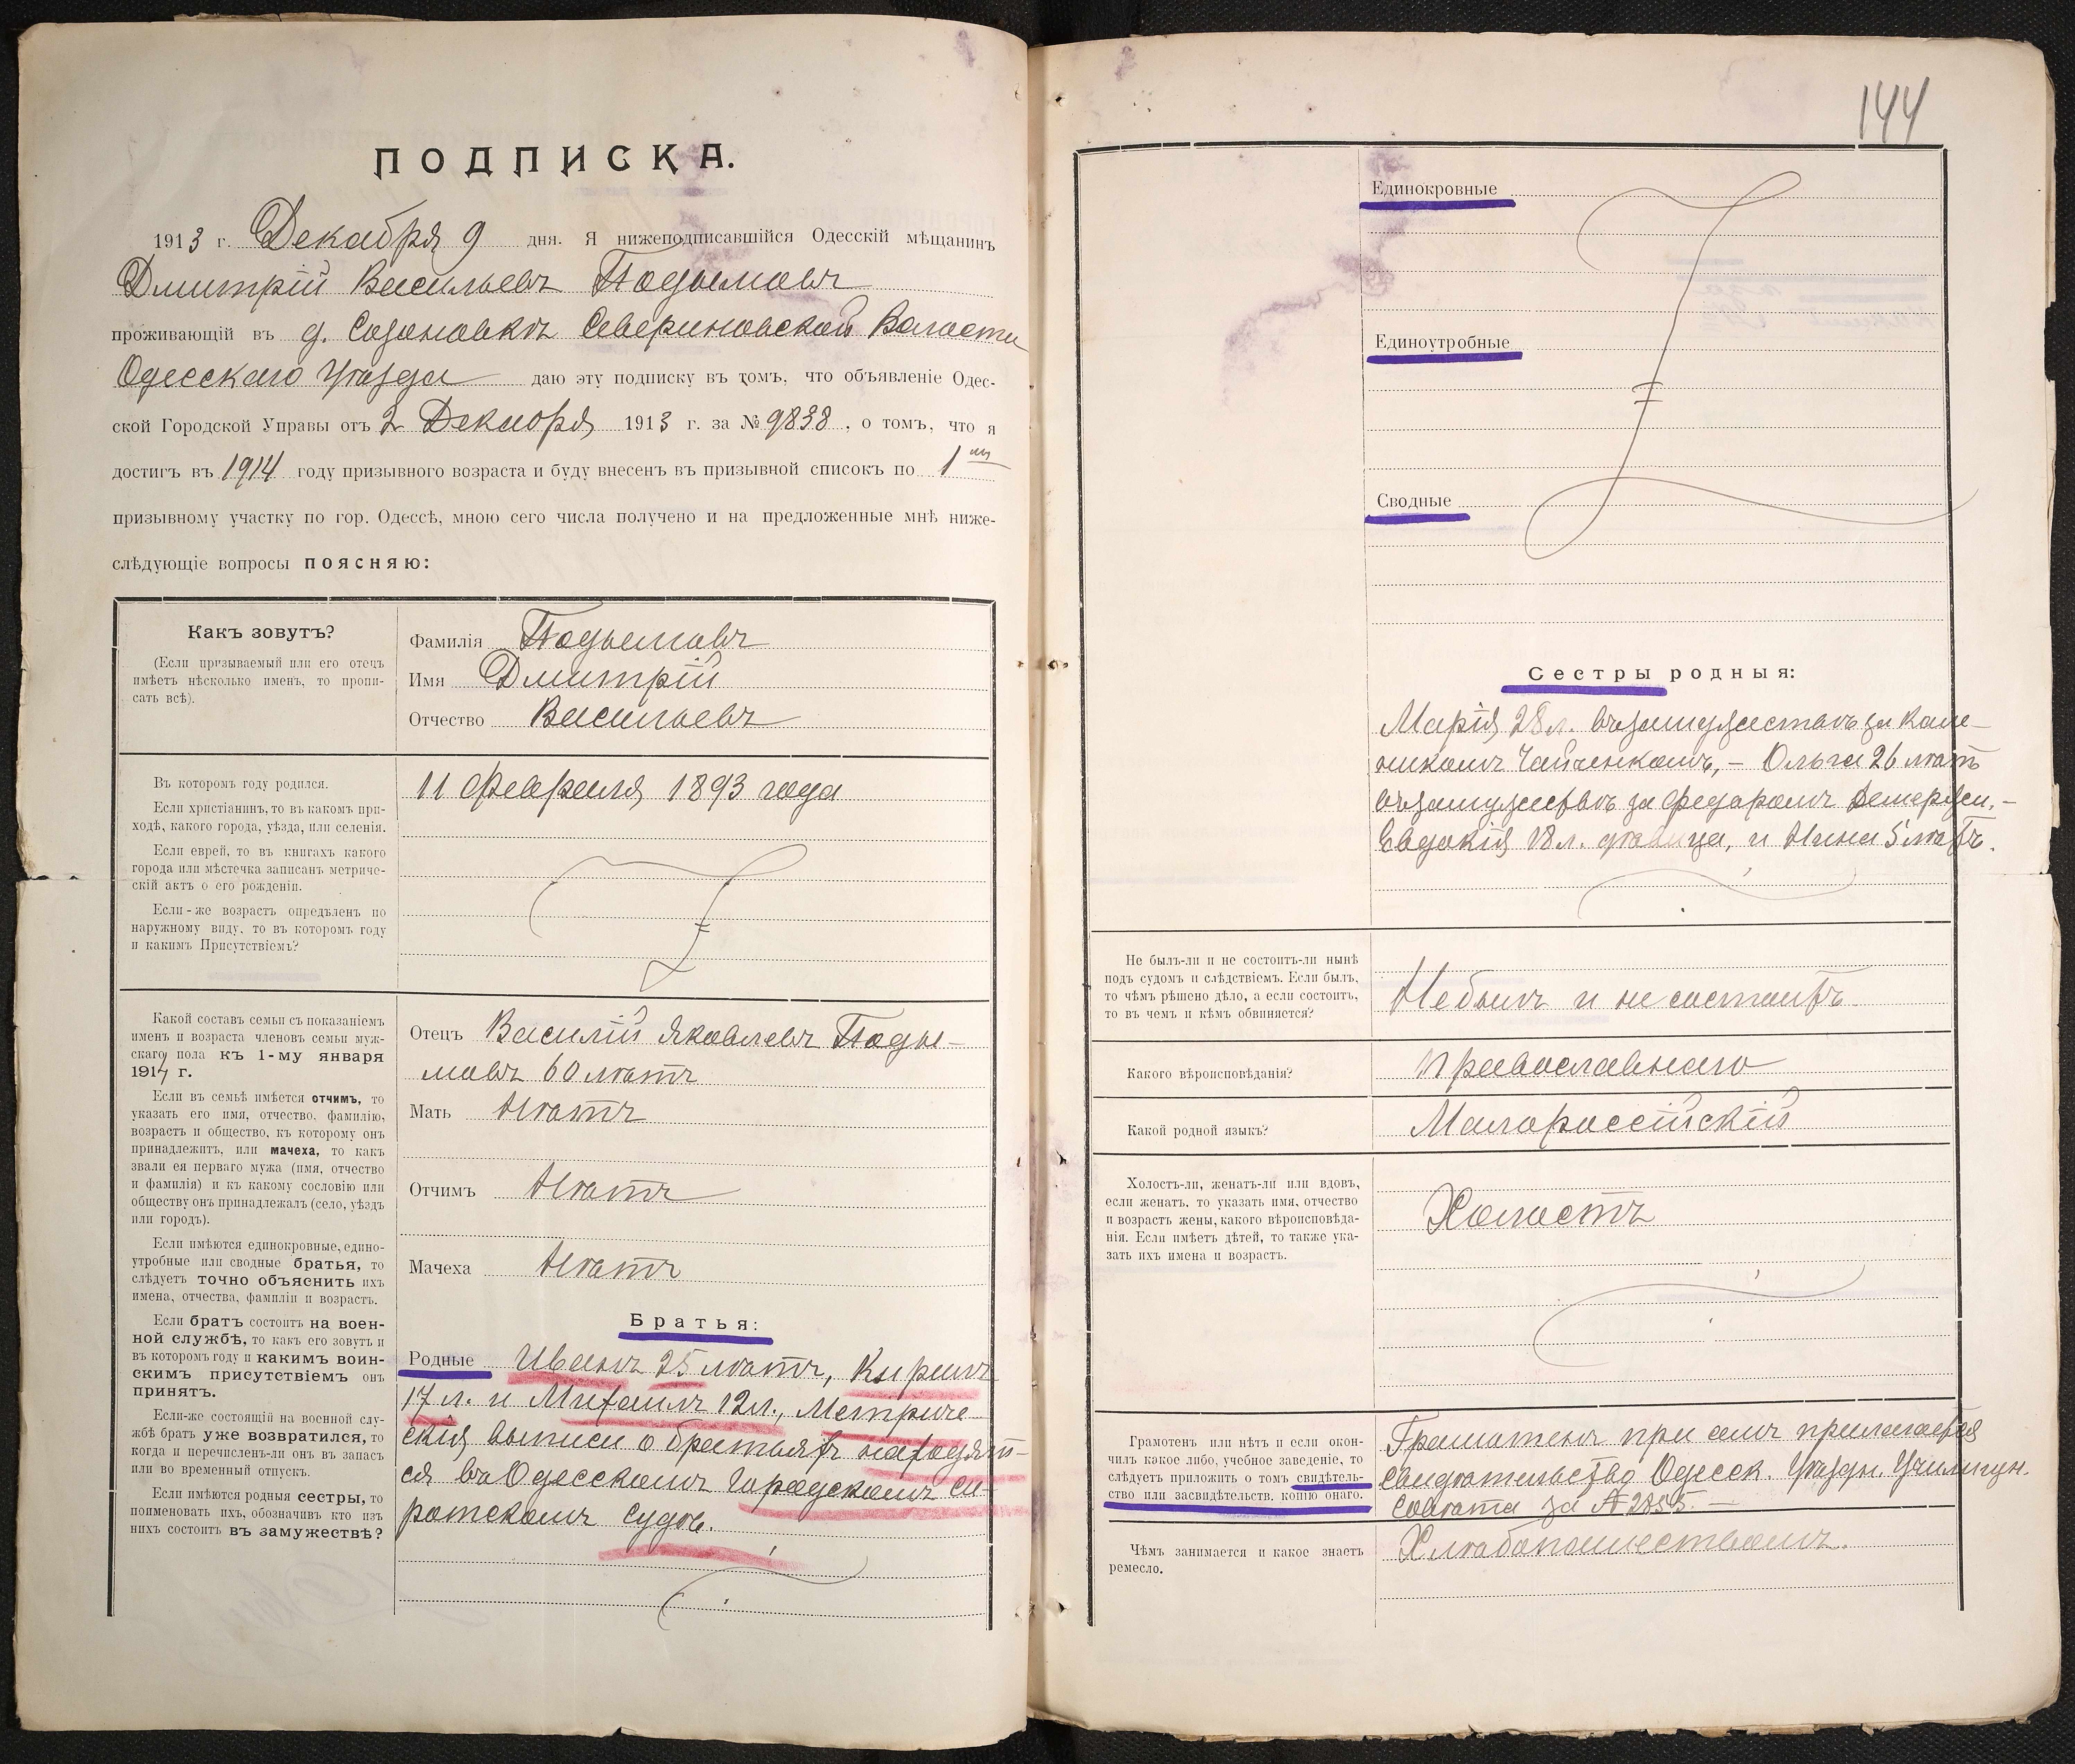 144
ПОДПИСКА.
1913 г. Декабря 9 дня. Я нижеподписавшійся Одесскій мѣщанинъ
Дмитрій Васильевъ Подымовъ
проживающій въ д. Созоновкѣ Севериновской Волости
Одесскаго Уѣзда даю эту подписку въ томъ, что объявленіе Одес-
ской Городской Управы отъ 2 Декабря 1913 г. за № 9838, о томъ, что я
достигъ въ 1914 году призывного возраста и буду внесенъ въ призывной списокъ по 1му
призывному участку по гор. Одессѣ, мною сего числа получено и на предложенные мнѣ ниже-
слѣдующіе вопросы поясняю:
Какъ зовутъ?
(Если призываемый или его отецъ
имѣетъ нѣсколько именъ, то пропи-
сать всѣ).
Фамилія Подымовъ
Имя Дмитрій
Отчество Васильевъ
Въ которомъ году родился.
Если христіанинъ, то въ какомъ при-
ходѣ, какого города, уѣзда, или селенія.
Если еврей, то въ книгахъ какого
города или мѣстечка записанъ метриче-
скій актъ о его рожденіи.
Если-же возрастъ опредѣленъ по
наружному виду, то въ которомъ году
и какимъ Присутствіемъ?
11 Февраля 1893 года
Какой составъ семьи съ показаніемъ
именъ и возраста членовъ семьи муж-
скаго пола къ 1-му января
1914 г.
Если въ семьѣ имѣется отчимъ, то
указать его имя, отчество, фамилію,
возрастъ и общество, къ которому онъ
принадлежитъ, или мачеха, то какъ
звали ея перваго мужа (имя, отчество
и фамилія) и къ какому сословію или
обществу онъ принадлежалъ (село, уѣздъ
или городъ).
Если имѣются единокровные, едино-
утробные или сводные братья, то
слѣдуетъ точно объяснить ихъ
имена, отчества, фамиліи и возрастъ.
Если братъ состоитъ на воен-
ной службѣ, то какъ его зовутъ и
въ которомъ году и какимъ воин-
скимъ присутствіемъ онъ
принятъ.
Если-же состоящій на военной слу-
жбѣ братъ уже возвратился, то
когда и перечисленъ-ли онъ въ запасъ
или во временный отпускъ.
Если имѣются родныя сестры, то
поименовать ихъ, обозначивъ кто изъ
нихъ состоитъ въ замужествѣ?
Отецъ Василій Яковлевъ Поды-
мовъ 60 лѣтъ
Мать Нѣтъ
Отчимъ Нѣтъ
Мачеха Нѣтъ
Братья:
Родные Иванъ 25 лѣтъ, Кирилъ
17 л. и Михаилъ 12 л., Метриче-
скія выписи о братьяхъ находят-
ся въ Одесскомъ Городскомъ Си-
ротскомъ Судѣ.
Единокровные
Единоутробные
Сводные
Сестры родныя:
Марія 28 л. въ замужествѣ за
Чайченкомъ, – Ольга 26 лѣтъ
въ замужествѣ за Федоромъ
Евдокія 18 л. дѣвица, и Нина 5 лѣтъ.
Не былъ-ли и не состоитъ-ли нынѣ
подъ судомъ и слѣдствіемъ. Если былъ,
то чѣмъ рѣшено дѣло, а если состоитъ,
то въ чемъ и кѣмъ обвиняется?
Небылъ и не состоитъ
Какого вѣроисповѣданія?
Православнаго
Какой родной языкъ?
Малороссійскій
Холостъ-ли, женатъ-ли или вдовъ,
если женатъ, то указать имя, отчество
и возрастъ жены, какого вѣроисповѣда-
нія. Если имѣетъ дѣтей, то также ука-
зать ихъ имена и возрастъ.
Холостъ
Грамотенъ или нѣтъ и если окон-
чилъ какое либо, учебное заведеніе, то
слѣдуетъ приложить о томъ свидѣтель-
ство или засвидѣтельств. копію онаго.
Грамотенъ при семъ прилагается
свидѣтельство Одесск. Уѣздн. Училищн.
Совѣта за № 2855. –
Чѣмъ занимается и какое знаетъ
ремесло.
Хлѣбопашествомъ.